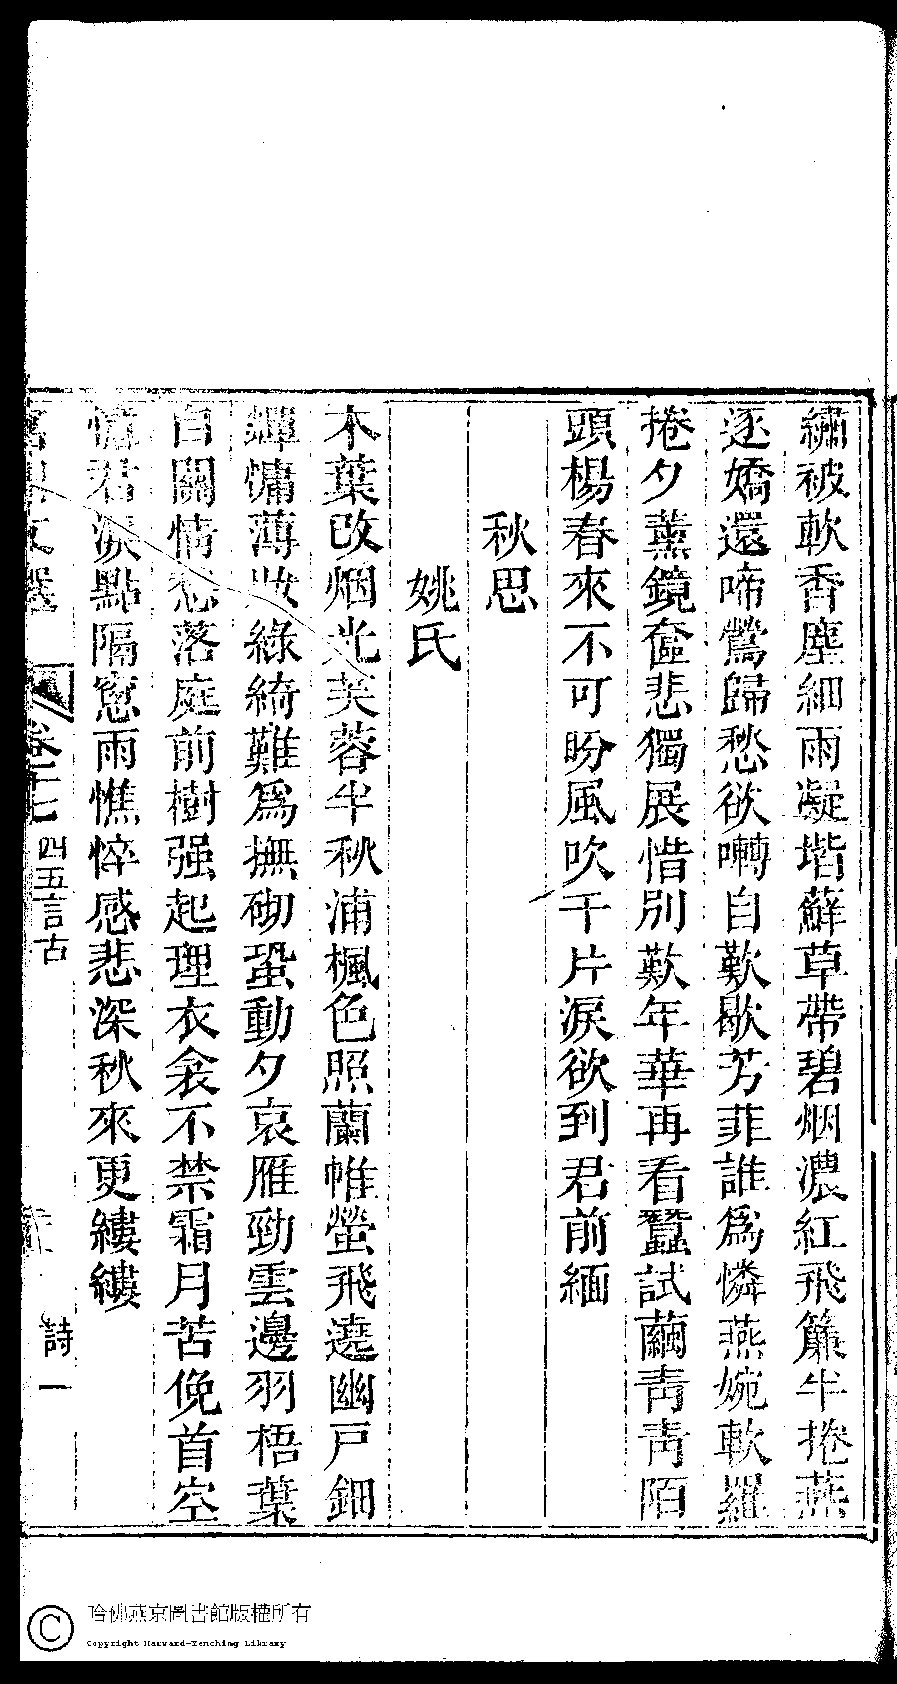 繡被軟香塵細雨凝堦蘚草帶碧烟濃紅飛簾半捲燕
逐嬌還啼鶯歸愁欲囀自歎歇芳菲誰爲憐燕婉軟羅
捲夕薰鏡奩悲獨展惜別歎年華再看蠶試繭青青陌
頭楊春來不可盼風吹千片淚欲到君前緬
秋思
姚氏
木葉改烟光芙蓉半秋浦楓色照蘭帷螢飛遶幽戸鈿
蟬慵薄妝綠綺難爲撫砌蛩動夕哀雁勁雲邊羽梧葉
自關情愁落庭前樹强起理衣衾不禁霜月苦俛首空
憶君淚點隔窻雨憔悴感悲深秋來更縷縷
文選 卷十七 四五言古 詩 一
哈佛燕京圖書館版權所有
Copyright Harvard-Yenching Library